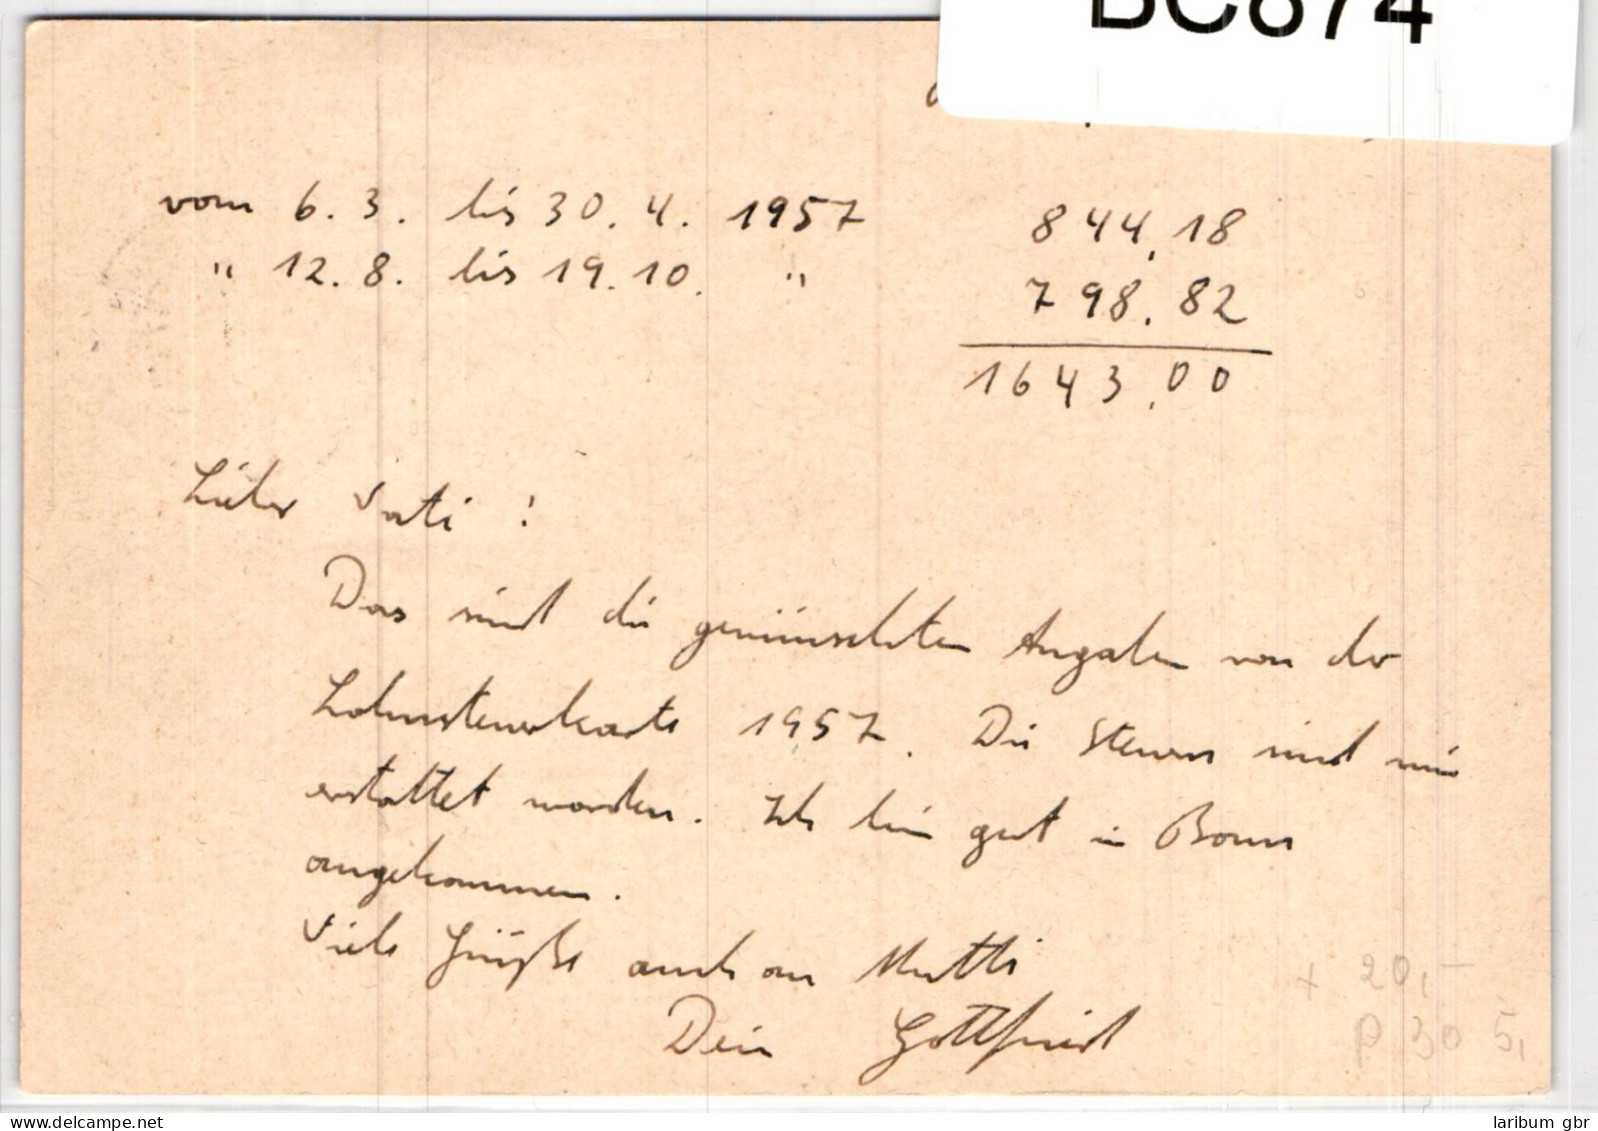 BC674
vom 6. 3. bis 30. 4. 1957 844,18
" 12. 8. bis 19. 10. " 798,82
1643,00
Lieber Vati!
Das sind die gewünschten Angaben von der
Lohnsteuerkarte 1957. Die Steuern sind mir
erstattet worden. Ich bin gut in Bonn
angekommen.
Viele Grüße auch an Mutti
Dein Gottfried
+ 20,-
P 30 5,
www.delcampe.net
laribum gbr